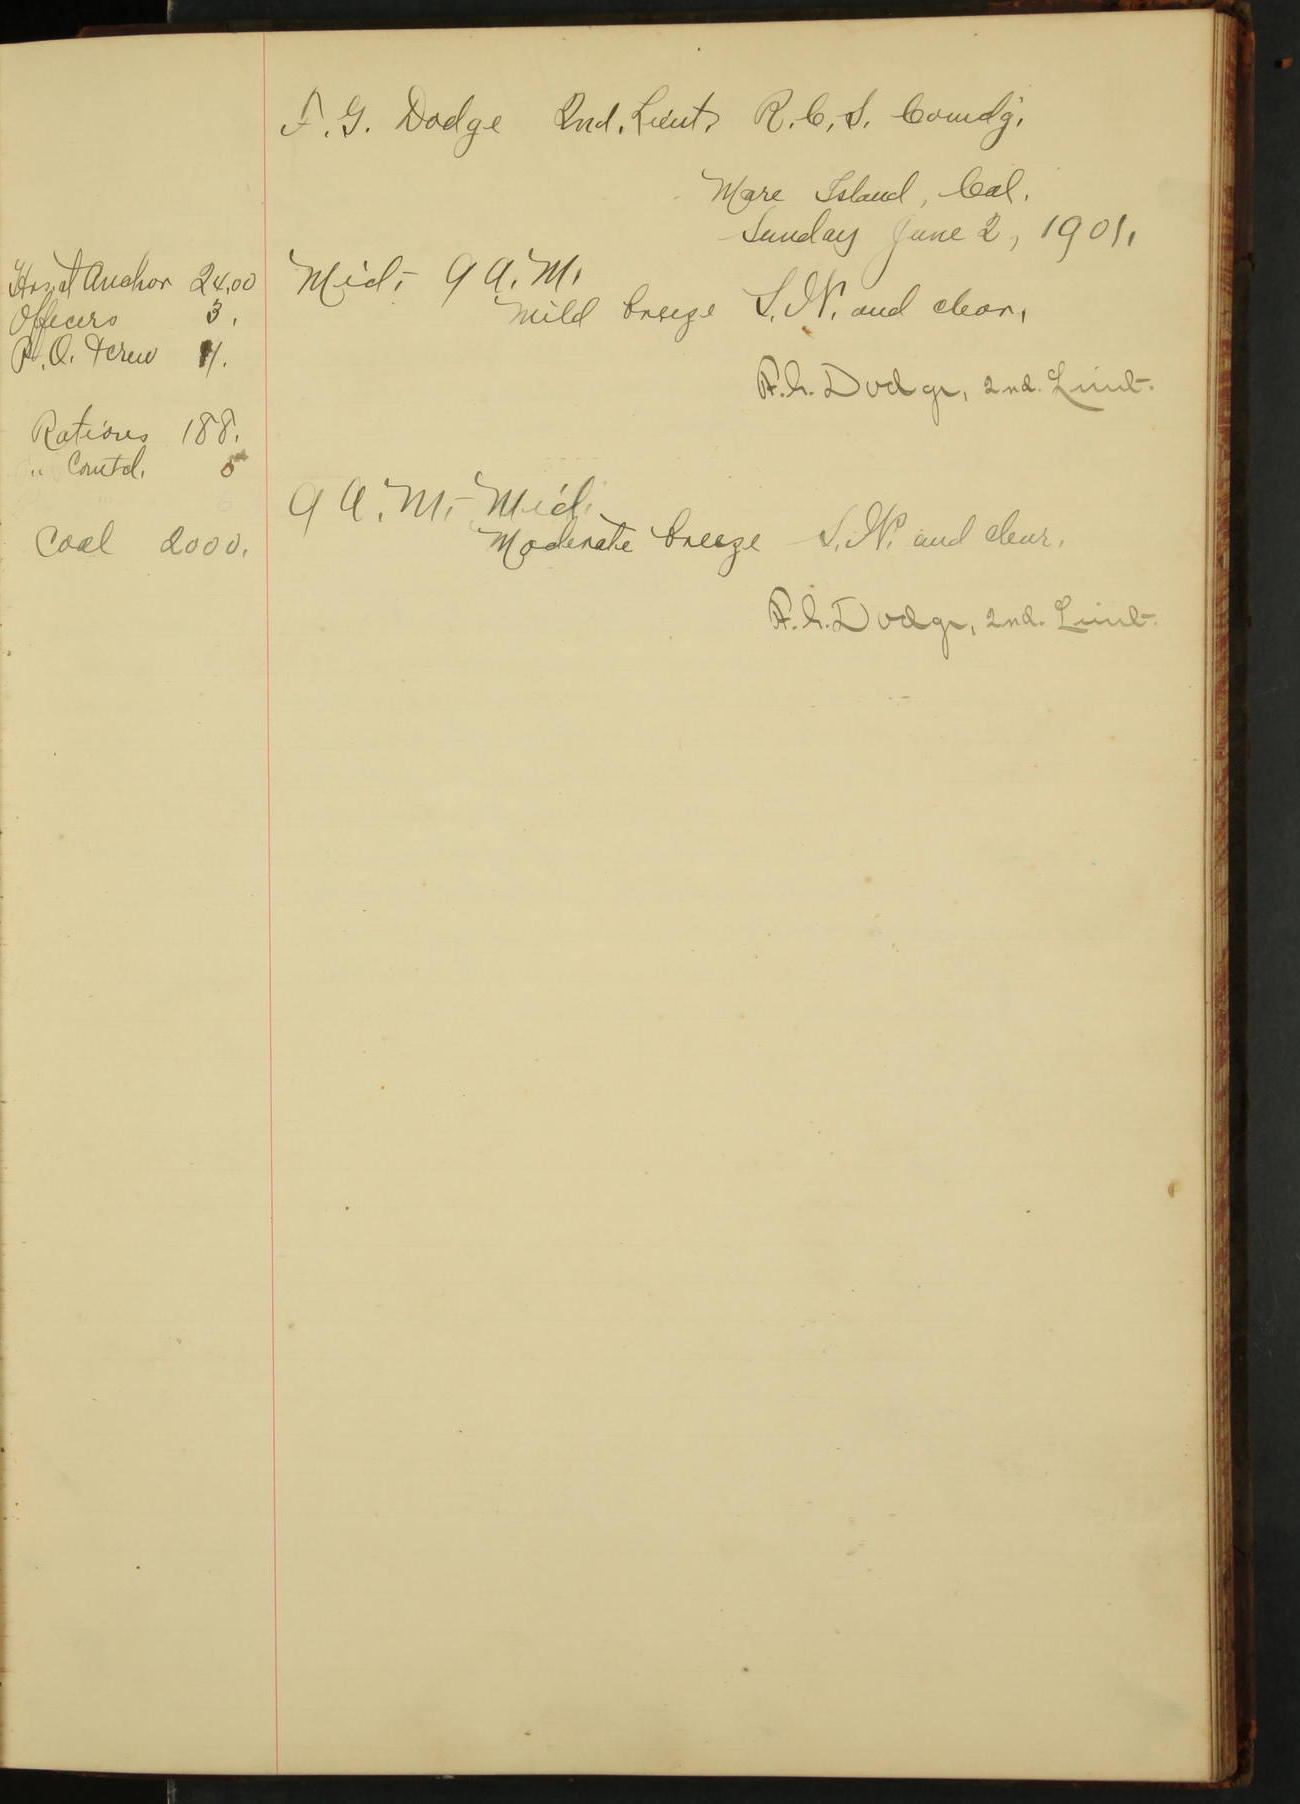 F. G. Dodge 2nd. Lieut. R. C. S. Comdg.
Mare Island, Cal.
Sunday June 2, 1901.
Hrs. at Anchor 24.00
Officers 3.
P. O. & Crew 11.
Rations 188.
" Comtd. 5
Coal 2000.
Mid. - 9 A. M.
Mild breeze S. W. and clear.
F. G. Dodge, 2nd. Lieut.
9 A. M. - Mid.
Moderate breeze S. W. and clear.
F. G. Dodge, 2nd. Lieut.